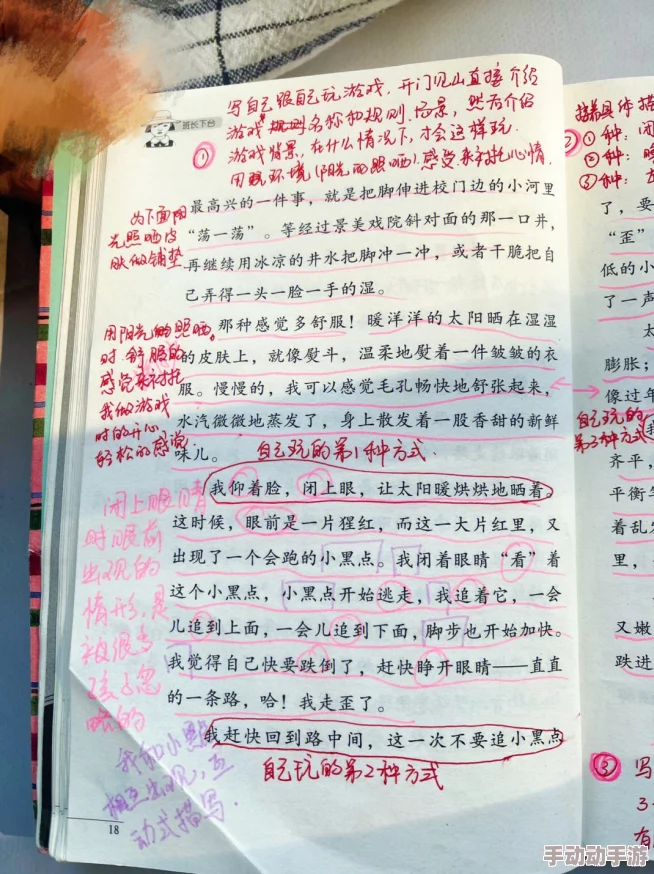 班长下台
①
写自己跟自己玩游戏. 开门见山直接介绍
游戏名称和规则. 场景, 然后介绍
游戏背景, 在什么情况下, 才会这样玩.
用观环境(阳光的照晒). 感觉来衬托心情.
描写具体描
② ①种: 闭
②种:
③种:
最高兴的一件事，就是把脚伸进校门边的小河里
为下面阳
光照晒皮
肤做铺垫
“荡一荡”。等经过景美戏院斜对面的那一口井，
再继续用冰凉的井水把脚冲一冲，或者干脆把自
己弄得一头一脸一手的湿。
用阳光的照晒.
时. 舒服的
感觉来衬托
我做游戏
时的开心,
轻松的感觉.
那种感觉多舒服！暖洋洋的太阳晒在湿湿
的皮肤上，就像熨斗，温柔地熨着一件皱皱的衣
服。慢慢的，我可以感觉毛孔畅快地舒张起来，
水汽微微地蒸发了，身上散发着一股香甜的新鲜
味儿。
自己玩的第1种方式.
我仰着脸，闭上眼，让太阳暖烘烘地晒着。
这时候，眼前是一片猩红，而这一大片红里，又
出现了一个会跑的小黑点。我闭着眼睛“看”着
这个小黑点，小黑点开始逃走，我追着它，一会
儿追到上面，一会儿追到下面，脚步也开始加快。
我觉得自己快要跌倒了，赶快睁开眼睛——直直
的一条路，哈！我走歪了。
我赶快回到路中间，这一次不要追小黑点
自己玩的第2种方式
闭上眼睛
时眼前
出现的
情形, 是
被很多
孩子忽
略的
我和小黑点
相互出现, 互
动式描写.
18
了，要
“歪”
低的小
了一声
膨胀；
像过年
自己玩的
第3种方式
我
齐平，
平衡
着乱
里，
又嫩
跌进
③ 写
3
有
手动动手游